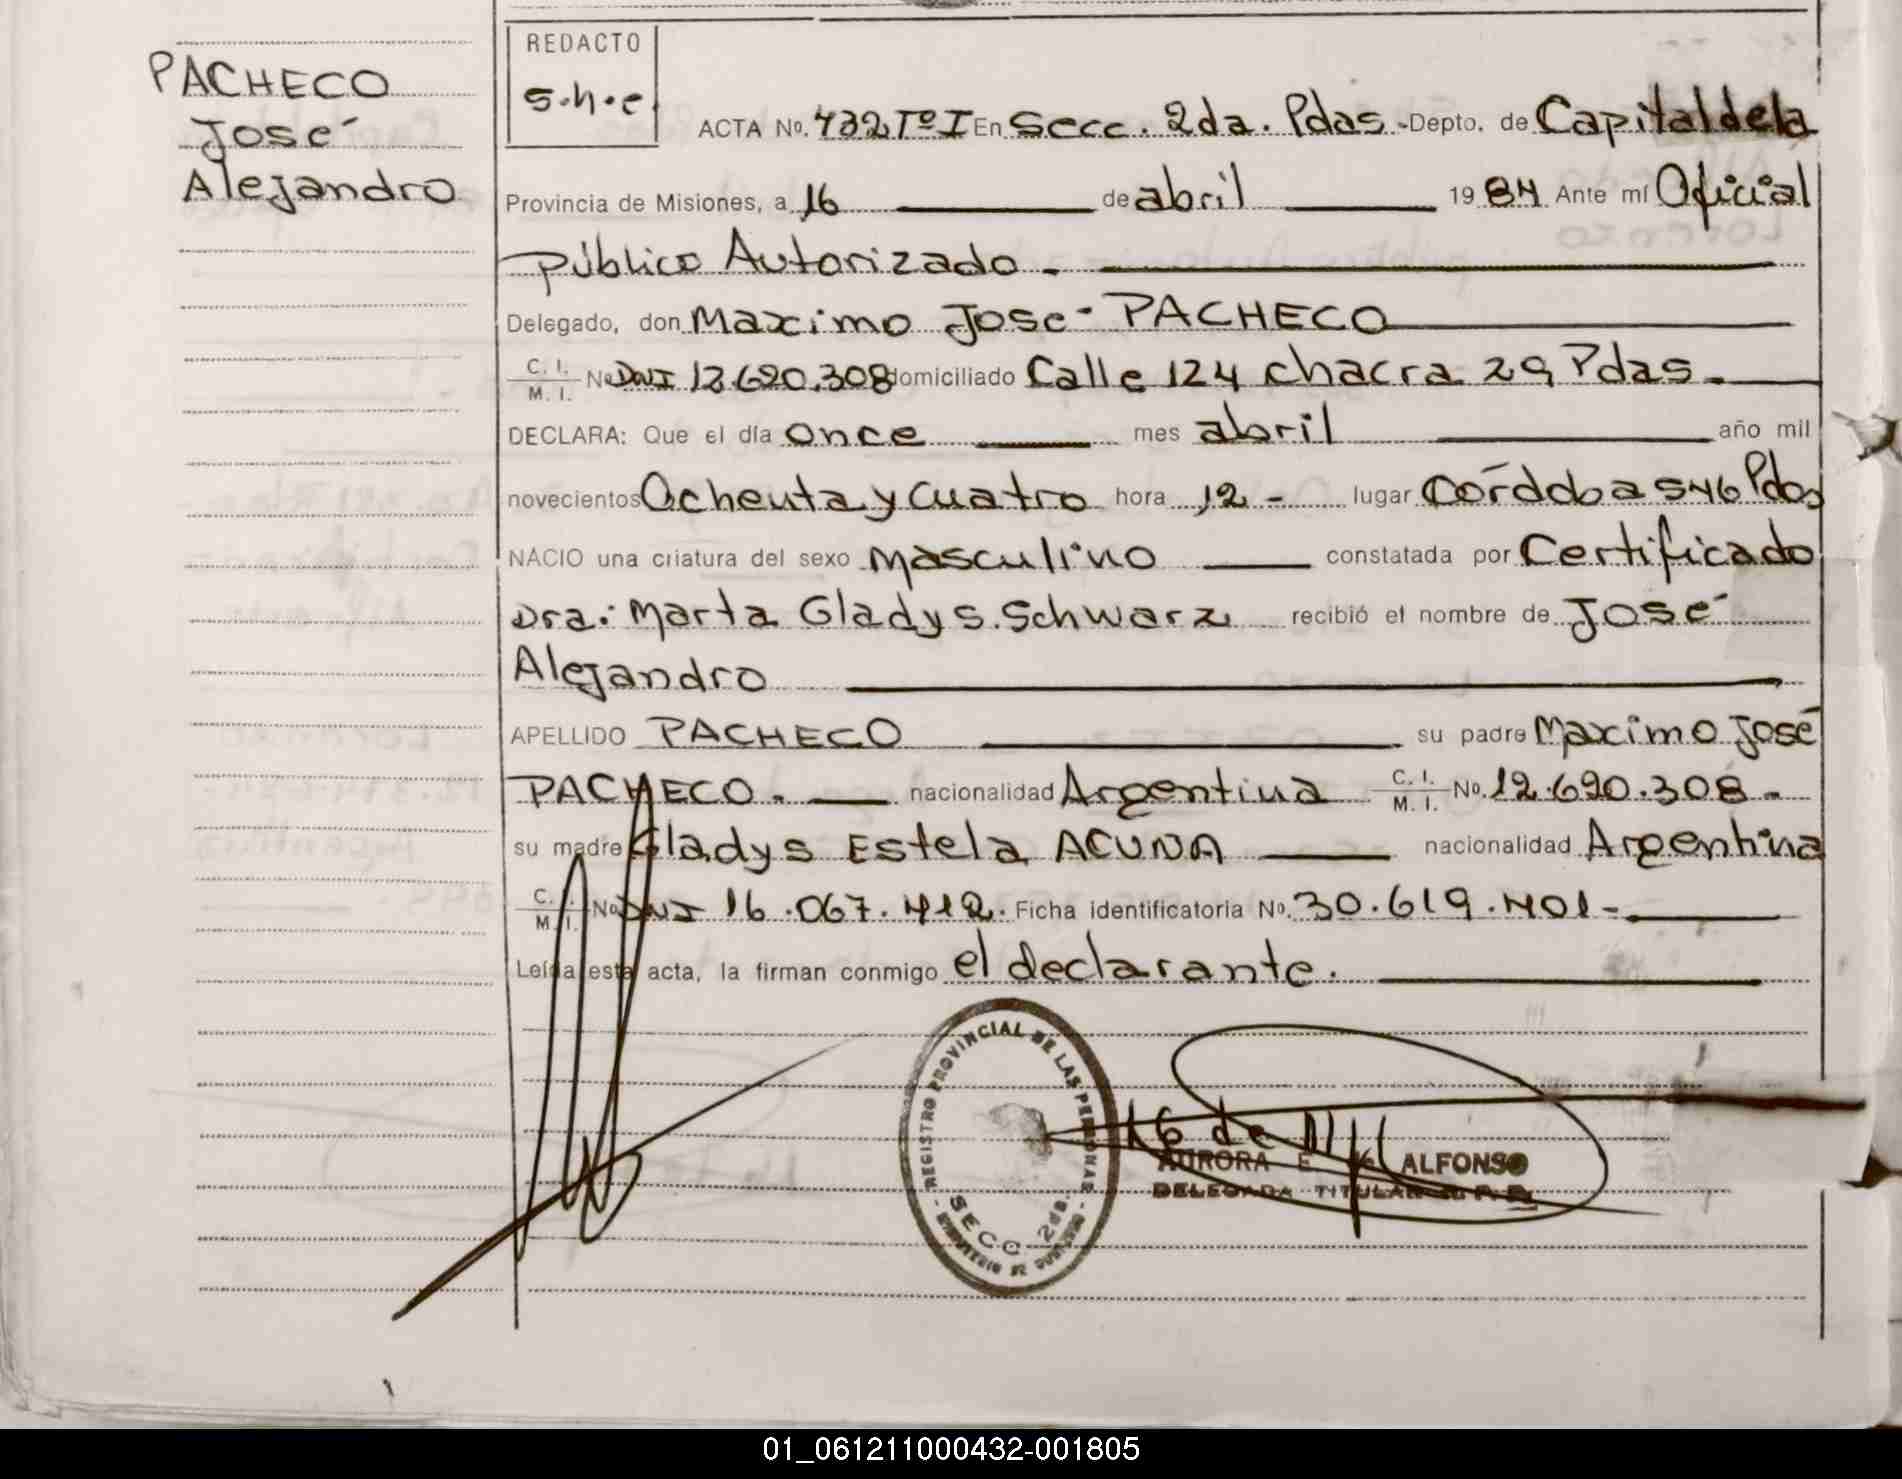 PACHECO
José
Alejandro
REDACTO
S.h.e.
ACTA No. 432 Tº I En Secc. 2da. Pdas. Depto. de Capital de la
Provincia de Misiones, a 16 de abril 1984 Ante mí Oficial
Público Autorizado.
Delegado, don Maximo José PACHECO
C. I. / M. I. No DNI 12.620.308 domiciliado Calle 124 chacra 29 Pdas.
DECLARA: Que el día once mes abril año mil
novecientos Ochenta y Cuatro hora 12 - lugar Córdoba 546 Pdas
NACIO una criatura del sexo Masculino constatada por Certificado
Dra: Marta Gladys Schwarz recibió el nombre de José
Alejandro
APELLIDO PACHECO su padre Maximo José
PACHECO. nacionalidad Argentina C. I. / M. I. No. 12.620.308-
su madre Gladys Estela ACUNA nacionalidad Argentina
C. I. / M. I. No DNI 16.067.412. Ficha identificatoria No. 30.619.401-
Leída esta acta, la firman conmigo el declarante.
REGISTRO PROVINCIAL DE LAS PERSONAS
SECC 2da.
AURORA E. ALFONSO
DELEGADA TITULAR
01_061211000432-001805